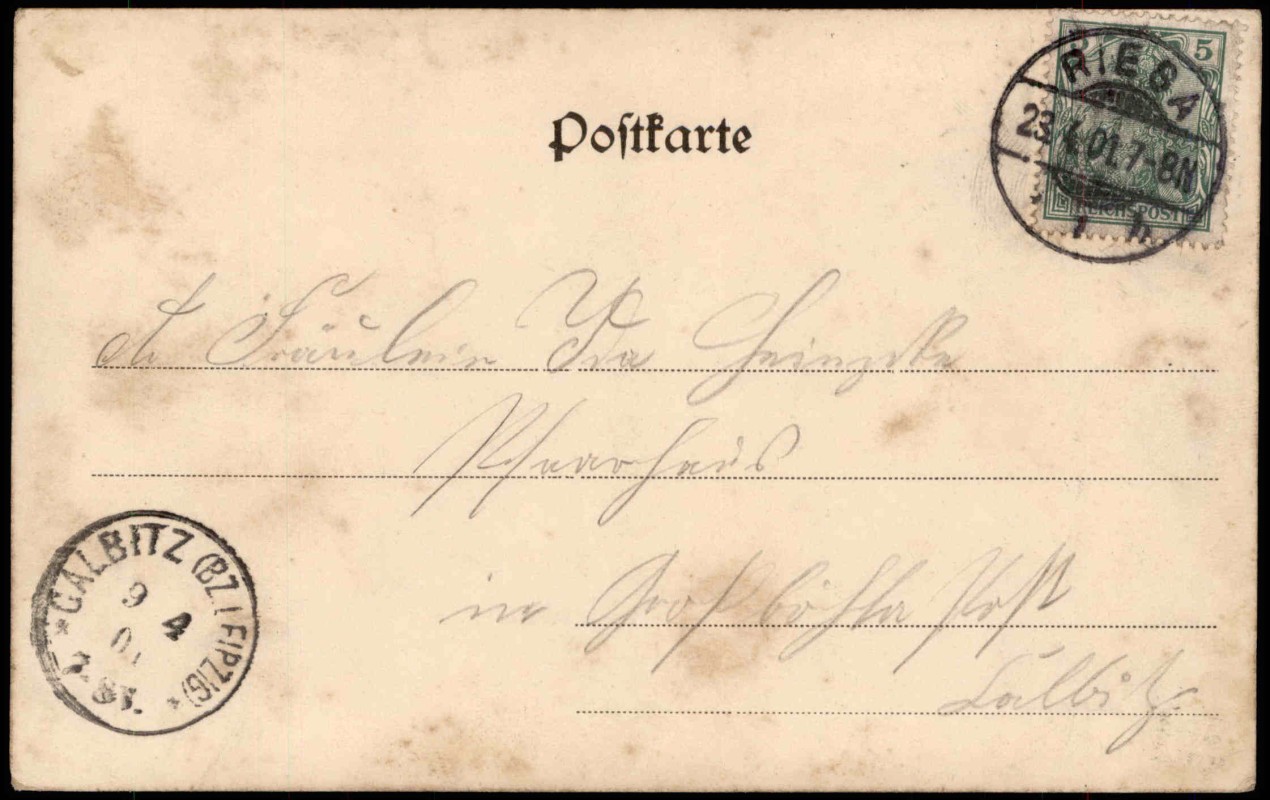 Postkarte
5
RIESA
23.4.01.7-8N
REICHSPOST
Fräulein Ida
Pfarrhaus
in Großböhla Post
Calbitz
CALBITZ (BZ. LEIPZIG)
9 4
01
7-8V.